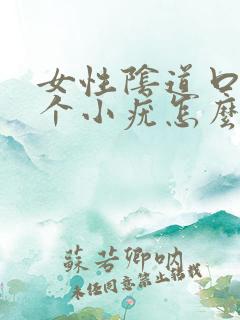 女性陰道口
个小疣怎麼
蘇若卿吶
未経同意禁止转载